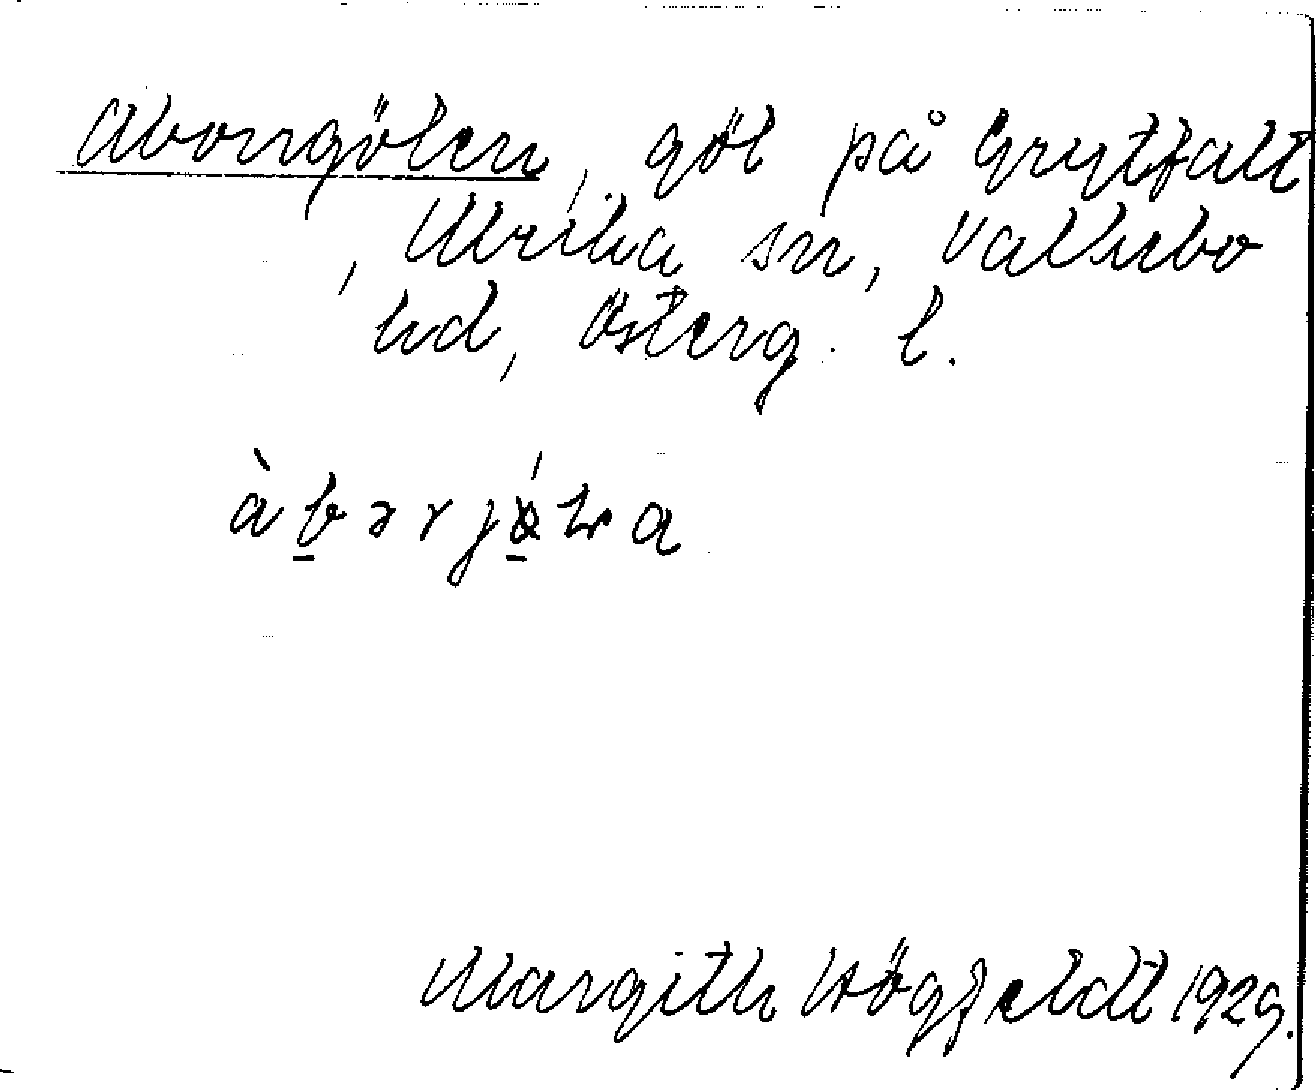 Aborrgölen, göl på Grytfall
, Ulrika sn, Valkebo
hd, Österg. l.
Margith Högfeldt 1929.